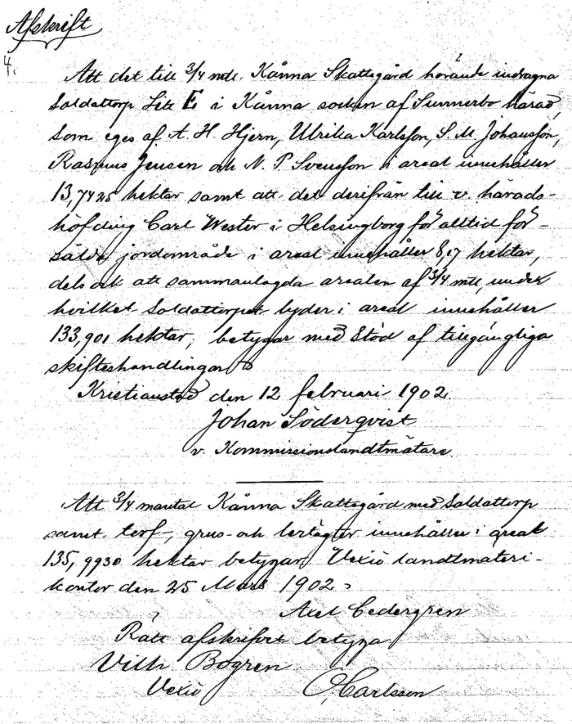 Afskrift
4.
Att det till 3/4 mtl. Kånna Skattegård hörande indragna
Soldattorp Litt E i Kånna socken af Sunnerbo härad,
som eges af A. H. Hjern, Ulrika Karlsson, S. M. Johansson,
Rasmus Jensen och N. P. Svensson i areal innehåller
13,7425 hektar samt att det derifrån till v. härads-
höfding Carl Wester i Helsingborg för alltid för-
sålda jordområde i areal innehåller 8,17 hektar,
dels ock att sammanlagda arealen af 3/4 mtl, under
hvilket Soldattorpet lyder i areal innehåller
133,901 hektar, betygar med Stöd af tillgängliga
skifteshandlingar
Kristianstad den 12 februari 1902.
Johan Söderqvist
v. Kommissionslandtmätare
Att 3/4 mantal Kånna Skattegård med Soldattorp
samt torf-, grus- och lertägter innehåller i areal
135,9930 hektar betygar Vexiö landtmäteri-
kontor den 25 Mars 1902.
Axel Cedergren
Rätt afskrifvet betyga
Vilh Bogren
Vexiö
O. Carlsson